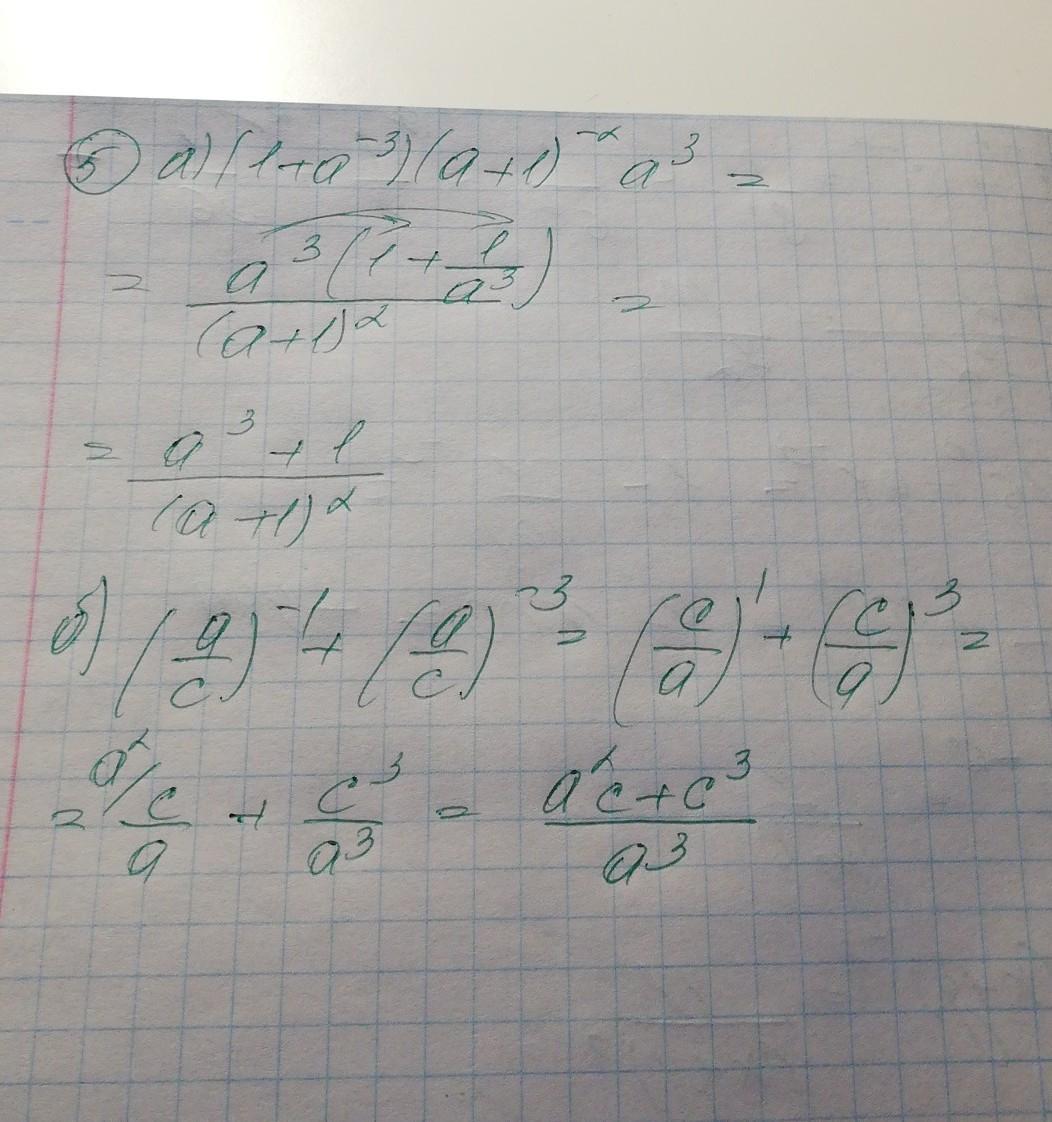 5 а) (1+a⁻³)(a+1)⁻² a³ =
= a³(1+1/a³)/(a+1)² =
= (a³+1)/(a+1)²
б) (a/c)⁻¹ + (a/c)⁻³ = (c/a)¹ + (c/a)³ =
= a²/ c/a + c³/a³ = (a²c+c³)/a³